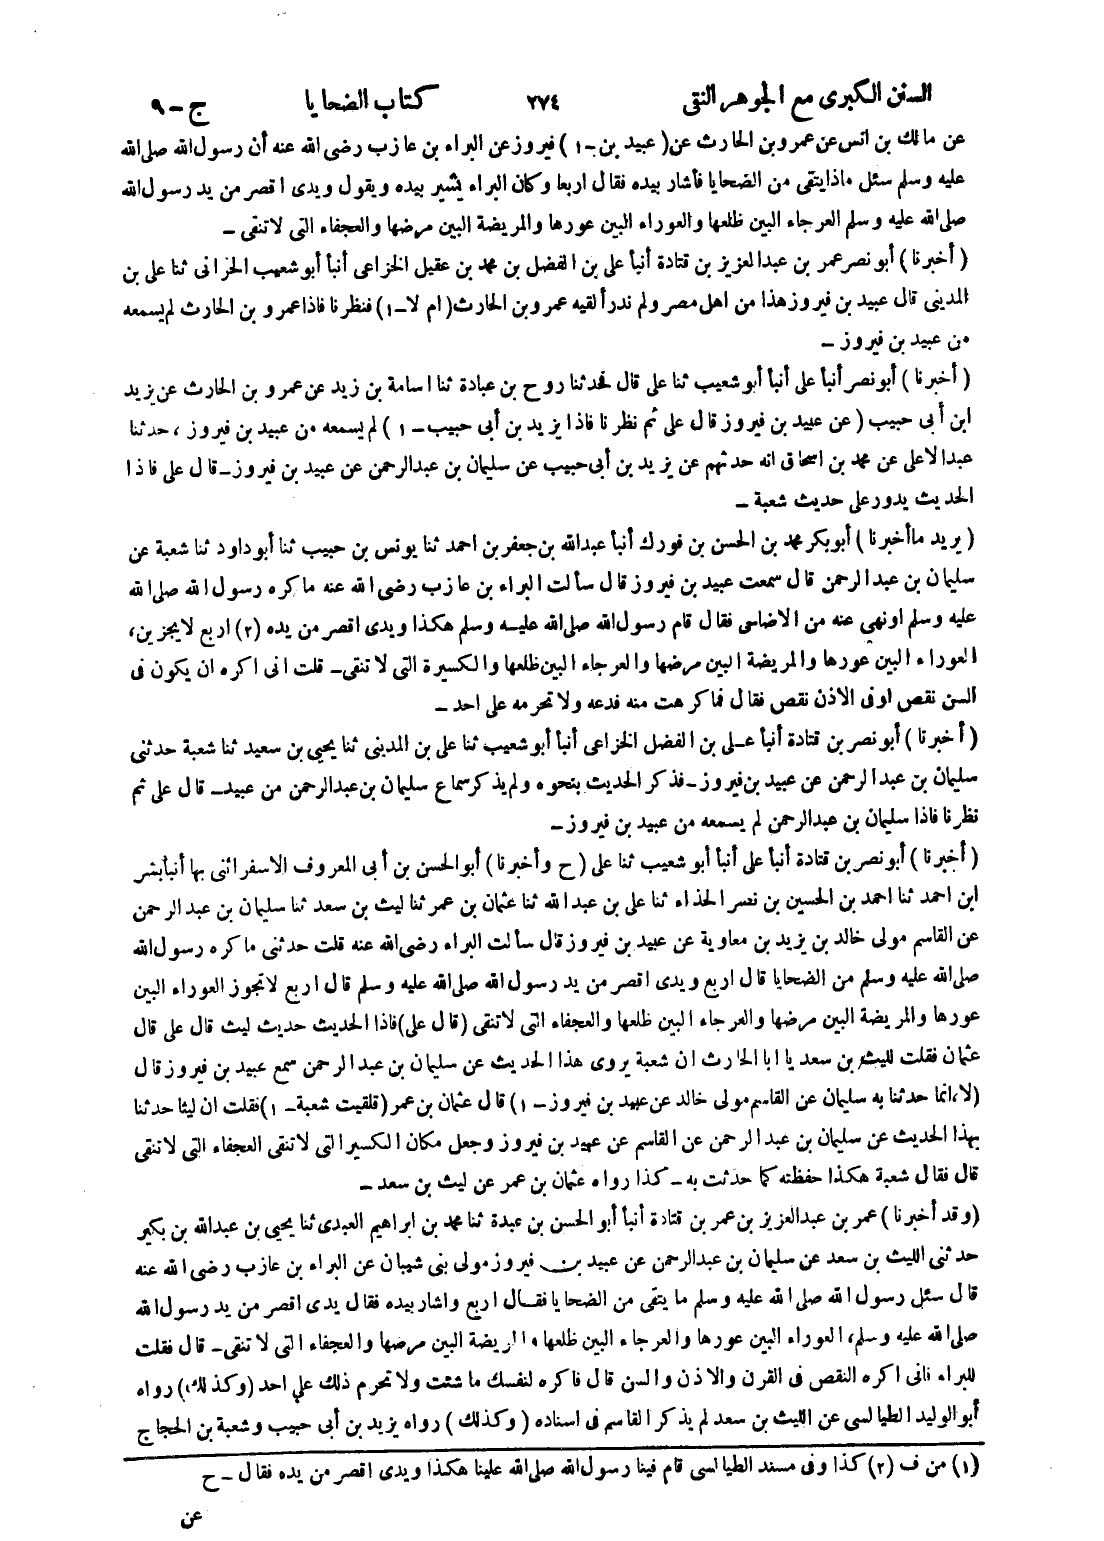 السنن الكبرى مع الجوهر النقى ٢٧٤ كتاب الضحايا ج-٩
عن مالك بن انس عن عمرو بن الحارث عن (عبيد بن-١) فيروز عن البراء بن عازب رضى الله عنه أن رسول الله صلى الله
عليه وسلم سئل ماذا يتقى من الضحايا فأشار بيده فقال اربعا وكان البراء يشير بيده ويقول ويدى اقصر من يد رسول الله
صلى الله عليه وسلم العرجاء البين ظلعها والعوراء البين عورها والمريضة البين مرضها والعجفاء التى لا تنقى-
(أخبرنا) أبو نصر عمر بن عبد العزيز بن قتادة أنبأ على بن الفضل بن محمد بن عقيل الخزاعى أنبأ أبو شعيب الحرانى ثنا على بن
المدينى قال عبيد بن فيروز هذا من اهل مصر ولم ندر ألقيه عمرو بن الحارث (ام لا-١) فنظرنا فاذا عمرو بن الحارث لم يسمعه
من عبيد بن فيروز-
(أخبرنا) أبو نصر أنبأ على أنبأ أبو شعيب ثنا على قال فحدثنا روح بن عبادة ثنا اسامة بن زيد عن عمرو بن الحارث عن يزيد
ابن أبى حبيب (عن عبيد بن فيروز قال على ثم نظرنا فاذا يزيد بن أبى حبيب-١) لم يسمعه من عبيد بن فيروز، حدثنا
عبد الاعلى عن محمد بن اسحاق انه حدثهم عن يزيد بن أبى حبيب عن سليمان بن عبد الرحمن عن عبيد بن فيروز-قال على فاذا
الحديث يدور على حديث شعبة-
(يريد ما أخبرنا) أبو بكر محمد بن الحسن بن فورك أنبأ عبد الله بن جعفر بن احمد ثنا يونس بن حبيب ثنا أبو داود ثنا شعبة عن
سليمان بن عبد الرحمن قال سمعت عبيد بن فيروز قال سألت البراء بن عازب رضى الله عنه ما كره رسول الله صلى الله
عليه وسلم اونهى عنه من الاضاحى فقال قام رسول الله صلى الله عليه وسلم هكذا ويدى اقصر من يده (٢) اربع لا يجزين،
العوراء البين عورها والمريضة البين مرضها والعرجاء البين ظلعها والكسيرة التى لا تنقى- قلت انى اكره ان يكون فى
السن نقص اوفى الاذن نقص فقال فما كرهت منه فدعه ولا تحرمه على احد-
(أخبرنا) أبو نصر بن قتادة أنبأ على بن الفضل الخزاعى أنبأ أبو شعيب ثنا على بن المدينى ثنا يحيى بن سعيد ثنا شعبة حدثنى
سليمان بن عبد الرحمن عن عبيد بن فيروز-فذكر الحديث بنحوه ولم يذكر سماع سليمان بن عبد الرحمن من عبيد- قال على ثم
نظرنا فاذا سليمان بن عبد الرحمن لم يسمعه من عبيد بن فيروز-
(أخبرنا) أبو نصر بن قتادة أنبأ على أنبأ أبو شعيب ثنا على (ح وأخبرنا) أبو الحسن بن أبى المعروف الاسفرائنى بها أنبأ بشر
ابن احمد ثنا احمد بن الحسين بن نصر الحذاء ثنا على بن عبد الله ثنا عثمان بن عمر ثنا ليث بن سعد ثنا سليمان بن عبد الرحمن
عن القاسم مولى خالد بن يزيد بن معاوية عن عبيد بن فيروز قال سألت البراء رضى الله عنه قلت حدثنى ما كره رسول الله
صلى الله عليه وسلم من الضحايا قال اربع ويدى اقصر من يد رسول الله صلى الله عليه وسلم قال اربع لا تجوز العوراء البين
عورها والمريضة البين مرضها والعرجاء البين ظلعها والعجفاء التى لا تنقى (قال على) فاذا الحديث حديث ليث قال على قال
عثمان فقلت لليث بن سعد يا ابا الحارث ان شعبة يروى هذا الحديث عن سليمان بن عبد الرحمن سمع عبيد بن فيروز قال
(لا، انما حدثنا به سليمان عن القاسم مولى خالد عن عبيد بن فيروز-١) قال عثمان بن عمر (فلقيت شعبة-١) فقلت ان ليثا حدثنا
بهذا الحديث عن سليمان بن عبد الرحمن عن القاسم عن عبيد بن فيروز وجعل مكان الكسير التى لا تنقى العجفاء التى لا تنقى
قال فقال شعبة هكذا حفظته كما حدثت به-كذا رواه عثمان بن عمر عن ليث بن سعد-
(وقد أخبرنا) عمر بن عبد العزيز بن عمر بن قتادة أنبأ أبو الحسن بن عبدة ثنا محمد بن ابراهيم العبدى ثنا يحيى بن عبد الله بن بكير
حدثنى الليث بن سعد عن سليمان بن عبد الرحمن عن عبيد بن فيروز مولى بنى شيبان عن البراء بن عازب رضى الله عنه
قال سئل رسول الله صلى الله عليه وسلم ما يتقى من الضحايا فقال اربع واشار بيده فقال يدى اقصر من يد رسول الله
صلى الله عليه وسلم، العوراء البين عورها والعرجاء البين ظلعها والمريضة البين مرضها والعجفاء التى لا تنقى- قال فقلت
للبراء فانى اكره النقص فى القرن والاذن والسن قال فاكره لنفسك ما شئت ولا تحرم ذلك على احد (وكذلك) رواه
أبو الوليد الطيالسى عن الليث بن سعد لم يذكر القاسم فى اسناده (وكذلك) رواه يزيد بن أبى حبيب وشعبة بن الحجاج
(١) من ف (٢) كذا وفى مسند الطيالسى قام فينا رسول الله صلى الله علينا هكذا ويدى اقصر من يده فقال-ح
عن